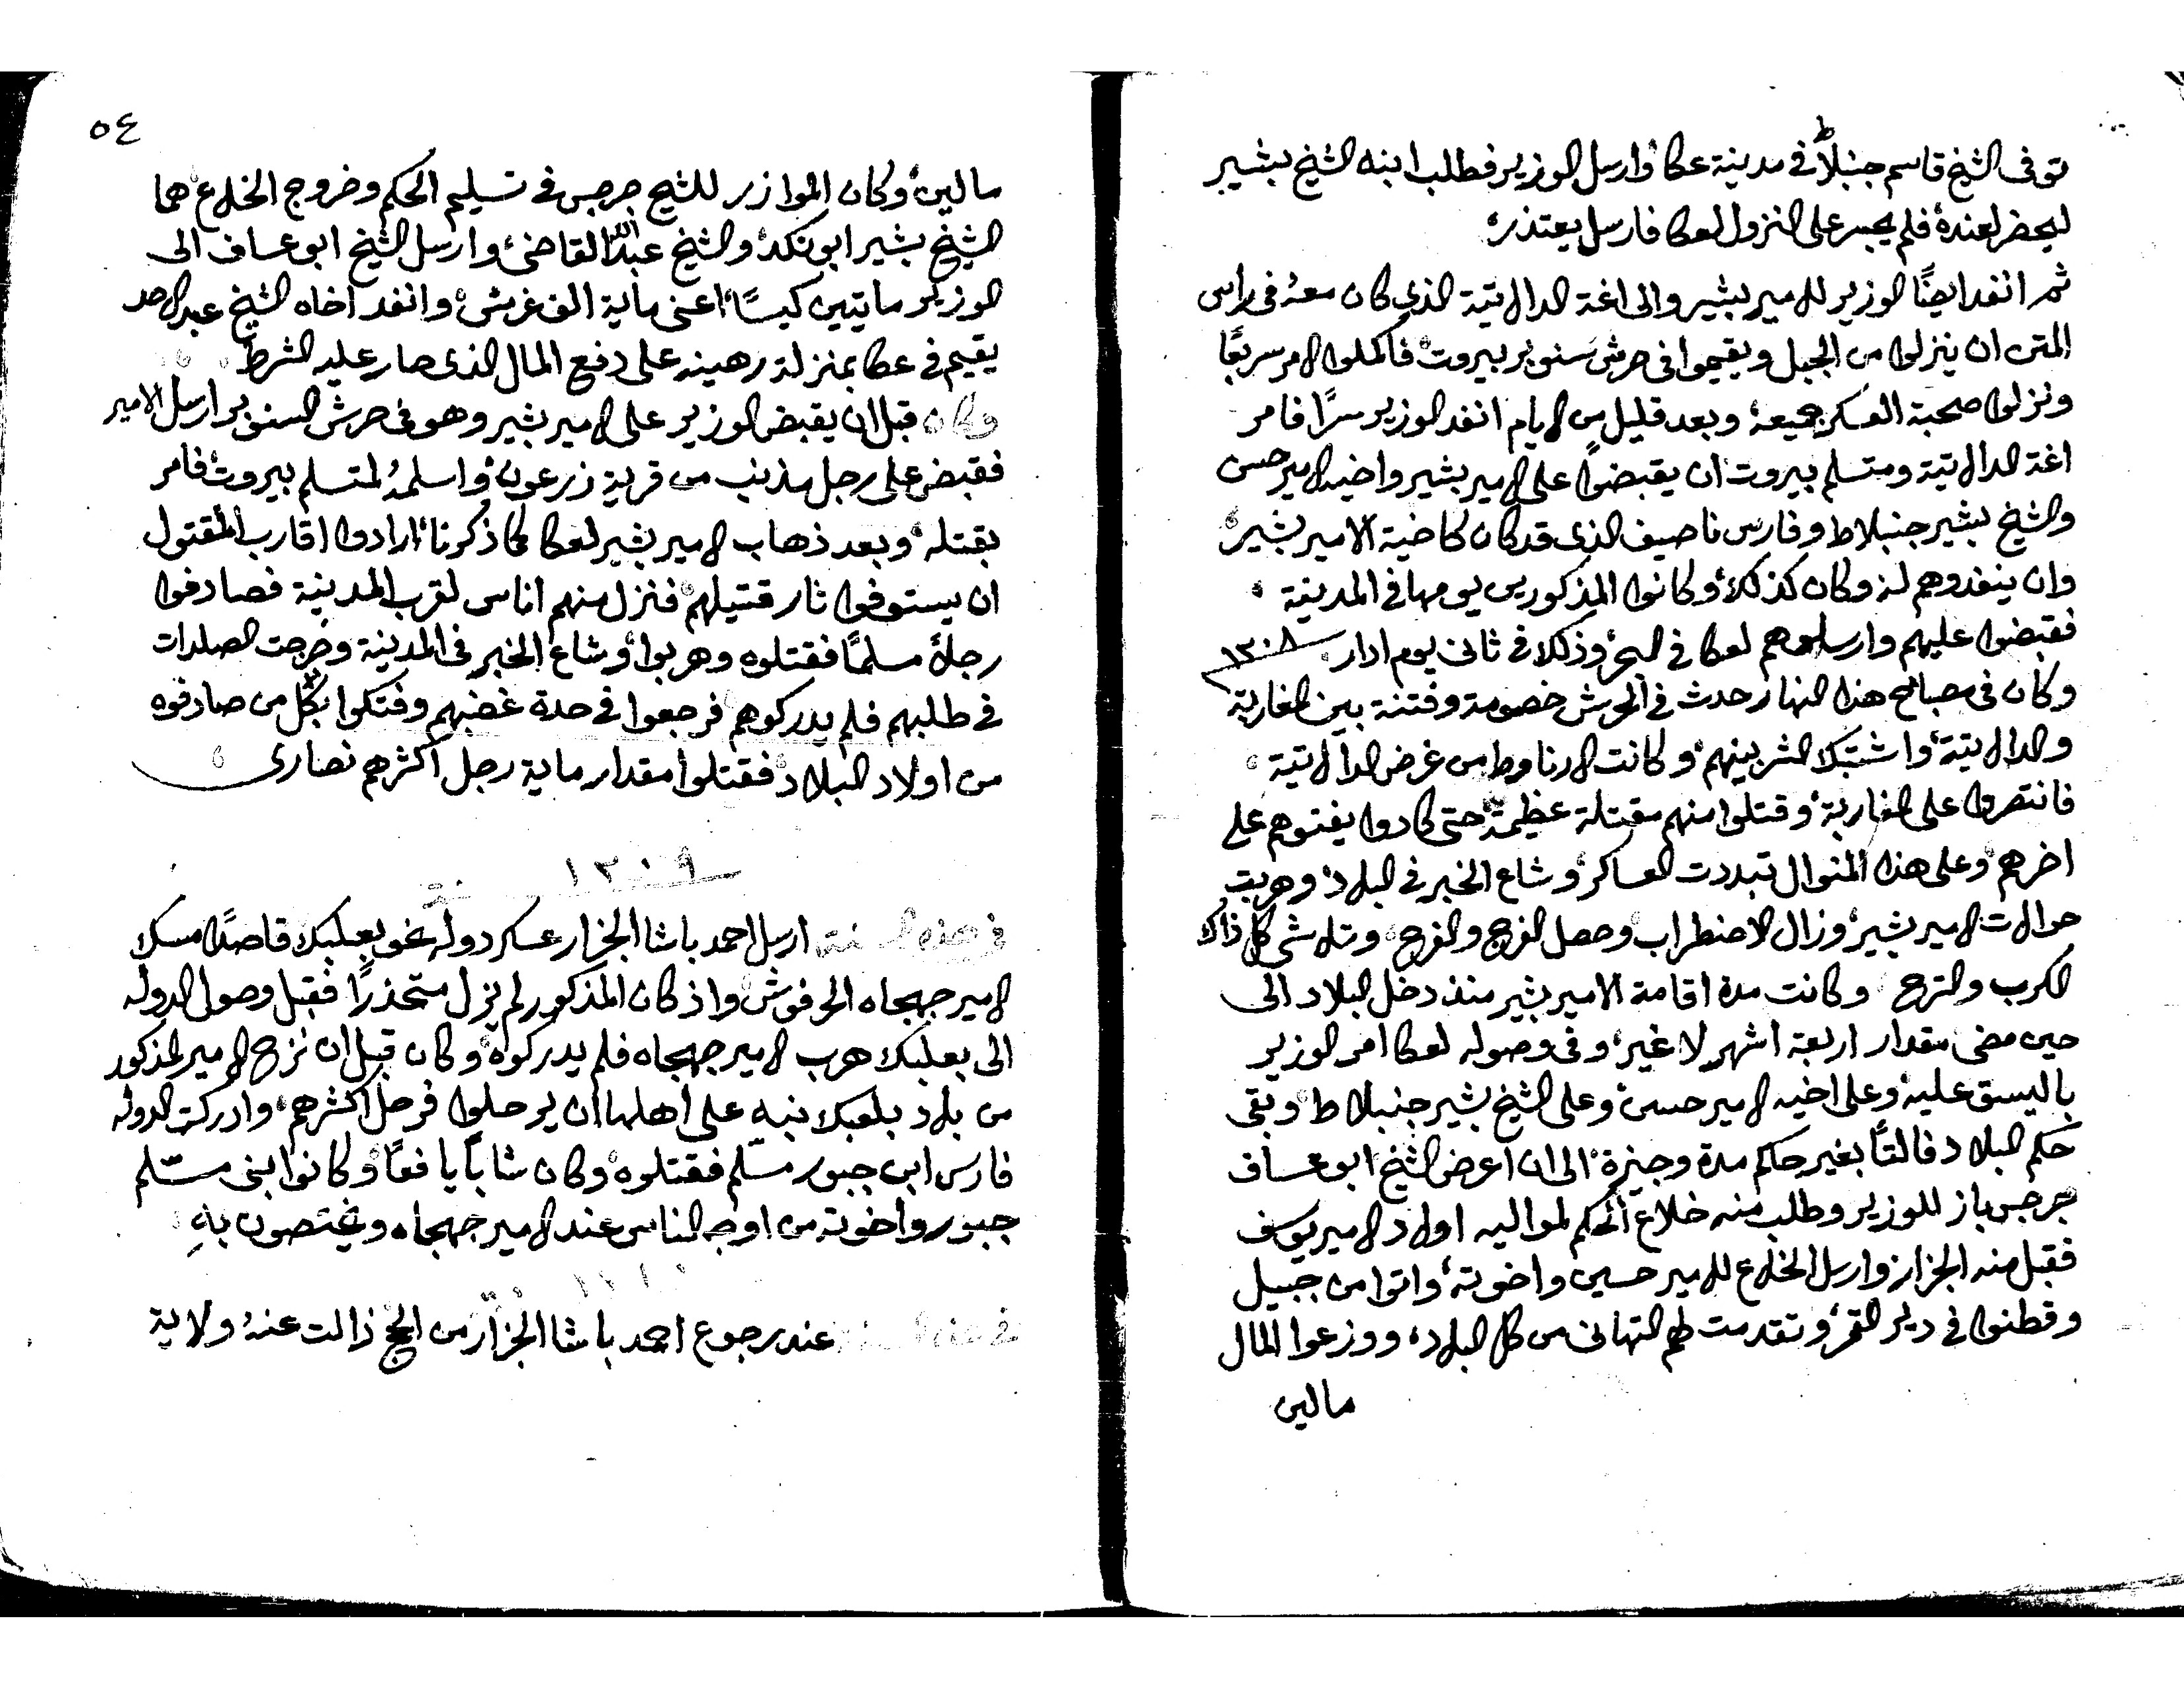 توفى الشيخ قاسم جنبلاط في مدينة عكا وارسل الوزير فطلب ابنه الشيخ بشير
ليحضر لعنده فلم يجسر على النزول لعكا فارسل يعتذره
ثم انفد ايضًا الوزير للامير بشير والى اغة الدالاتية الذي كان معه في راس
المتن ان ينزلوا من الجبل ويقيموا في حرش سنوبر بيروت فاكملوا الامر سريعًا
ونزلوا صحبة العسكر جميعه وبعد قليل من الايام انفد الوزير سرًا فامر
اغة الدالاتية ومتسلم بيروت ان يقبضوا على الامير بشير واخيه الامير حسن
والشيخ بشير جنبلاط وفارس ناصيف الذي قد كان كاخية الامير بشير
وان ينفدوهم له وكان كذلك وكانوا المذكورين يومها في المدينة
فقبضوا عليهم وارسلوهم لعكا في البحر وذلك في ثاني يوم ادار ١٢٠٨
وكان في صباح هذا النهار حدث في الحرش خصومة وفتنة بين المغاربة
والدالاتية واشتبك الشر بينهم وكانت الارناوط من غرض الدالاتية
فانتصروا على المغاربة وقتلوا منهم مقتلة عظيمة حتى كادوا يفنوهم على
اخرهم وعلى هذا المنوال تبددت العساكر وشاع الخبر في البلاد وهربت
حوالات الامير بشير وزال الاضطراب وحصل الفرج والفرح وتلاشى كل ذاك
الكرب والترح وكانت مدة اقامة الامير بشير منذ دخل البلاد الى
حين مضى مقدار اربعة اشهر لا غير وفي وصوله لعكا امر الوزير
باليسق عليه وعلى اخيه الامير حسن وعلى الشيخ بشير جنبلاط وبقى
حكم البلاد فالتًا بغير حاكم مدة وجيزة الى ان اعرض الشيخ ابو عساف
جرجس باز للوزير وطلب منه خلاع الحكم لمواليه اولاد الامير يوسف
فقبل منه الجزار وارسل الخلاع للامير حسين واخوته واتوا من جبيل
وقطنوا في دير القمر وتقدمت لهم التهاني من كل البلاد ووزعوا المال
مالين
٥٤
مالين وكان الموازر للشيخ جرجس في تسليم الحكم وخروج الخلاع هما
الشيخ بشير ابو نكد والشيخ عبدالله القاضي وارسل الشيخ ابو عساف الى
الوزير مايتين كيسًا اعنى ماية الف غرش وانفد اخاه الشيخ عبد الاحد
يقيم في عكا بمنزلة رهينه على دفع المال الذي صار عليه الشرط
وكان قبل ان يقبض الوزير على الامير بشير وهو في حرش السنوبر ارسل الامير
فقبض على رجل مذنب من قرية زرعون واسلمهُ لمتسلم بيروت فامر
بقتله وبعد ذهاب الامير بشير لعكا كما ذكرنا ارادوا اقارب المقتول
ان يستوفوا ثار قتيلهم فنزل منهم اناس لقرب المدينة فصادفوا
رجلاً مسلمًا فقتلوه وهربوا وشاع الخبر في المدينة وخرجت الصلدات
في طلبهم فلم يدركوهم فرجعوا في حدة غضبهم وفتكوا بكل من صادفوه
من اولاد البلاد فقتلوا مقدار ماية رجل اكثرهم نصارى
سنة ١٢٠٩
في هذه السنة ارسل احمد باشا الجزار عسكر دوله نحو بعلبك قاصدًا مسك
الامير جهجاه الحرفوش واذ كان المذكور لم يزل متحذرًا فقبل وصول الدوله
الى بعلبك هرب الامير جهجاه فلم يدركوه وكان قبل ان نزح الامير المذكور
من بلاد بلعبك نبه على اهلها ان يرحلوا فرحل اكثرهم وادركت الدوله
فارس ابن جبور مسلم فقتلوه وكان شابًا يافعًا وكانوا بنى مسلم
جبور واخوته من اوجه الناس عند الامير جهجاه ويختصون بهِ
١٢١٠
في هذه السنة عند رجوع احمد باشا الجزار من الحج زالت عنهُ ولاية